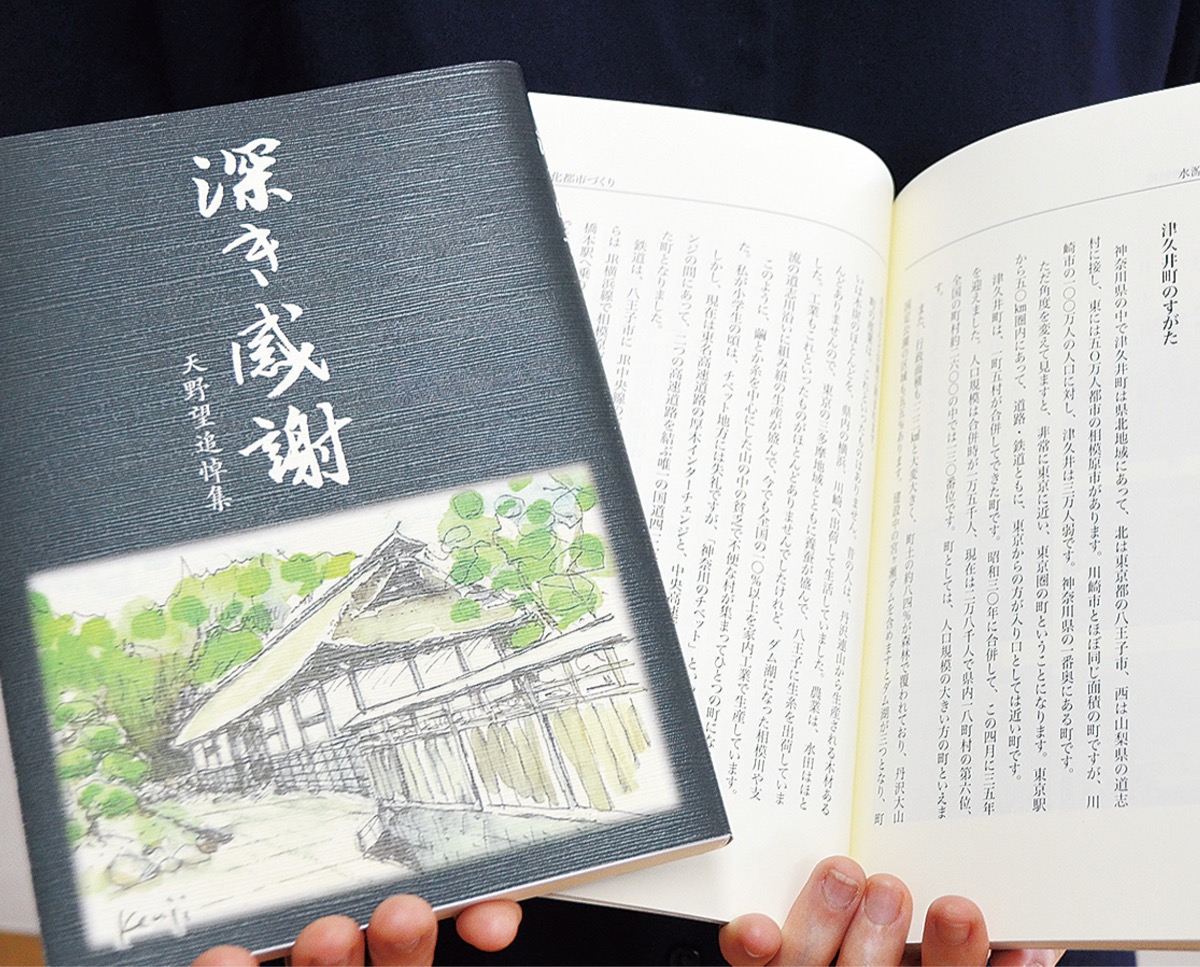 深き感謝
天野望追悼集
Kenji
水源
津久井町のすがた
神奈川県の中で津久井町は県北地域にあって、北は東京都の八王子市、西は山梨県の道志
村に接し、東には五〇万人都市の相模原市があります。川崎市とほぼ同じ面積の町ですが、川
崎市の一〇〇万人の人口に対し、津久井は三万人弱です。神奈川県の一番奥にある町です。
ただ角度を変えて見ますと、非常に東京に近い、東京圏の町ということになります。東京駅
から五〇㎞圏内にあって、道路・鉄道ともに、東京からの方が入り口としては近い町です。
津久井町は、一町五村が合併してできた町です。昭和三〇年に合併して、この四月に三五年
を迎えました。人口規模は合併時が一万五千人、現在は二万八千人で県内一八町村の第六位、
全国の町村約二六〇〇の中では一三〇番位です。町としては、人口規模の大きい方の町といえま
す。
また、行政面積も一二二㎢と大変大きく、町土の約八四％が森林で覆われており、丹沢大山
化都市づくり
いは木炭のほとんどを、県内の横浜、川崎へ出荷して生活していました。農業は、水田はほと
んどありませんので、東京の三多摩地域とともに養蚕が盛んで、八王子に生糸を出荷していま
した。工業もこれといったものがほとんどありませんでしたけれど、ダム湖になった相模川や支
流の道志川沿いに組み紐の生産が盛んで、今でも全国の一〇％以上を家内工業で生産しています。
このように、繭とか糸を中心にした山の中の貧乏で不便な村が集まってひとつの町にな
た。私が小学生の頃は、チベット地方には失礼ですが、「神奈川のチベット」とい
しかし、現在は東名高速道路の厚木インターチェンジと、中央高速
ンジの間にあって、二つの高速道路を結ぶ唯一の国道四
た町となりました。
鉄道は、八王子市にJR中央線
らはJR横浜線で相模原
橋本駅へ乗り